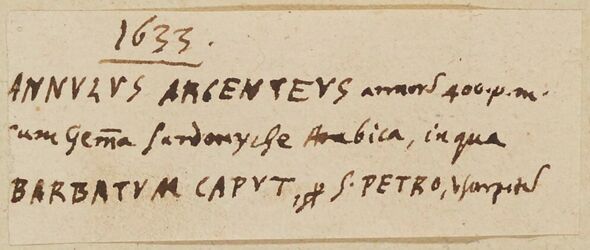 1633.
ANNULVS ARGENTEVS annorũ 400. p. m.
cum Gem̃a Sardonyche Arabica, in qua
BARBATVM CAPVT, ꝓ S. PETRO,